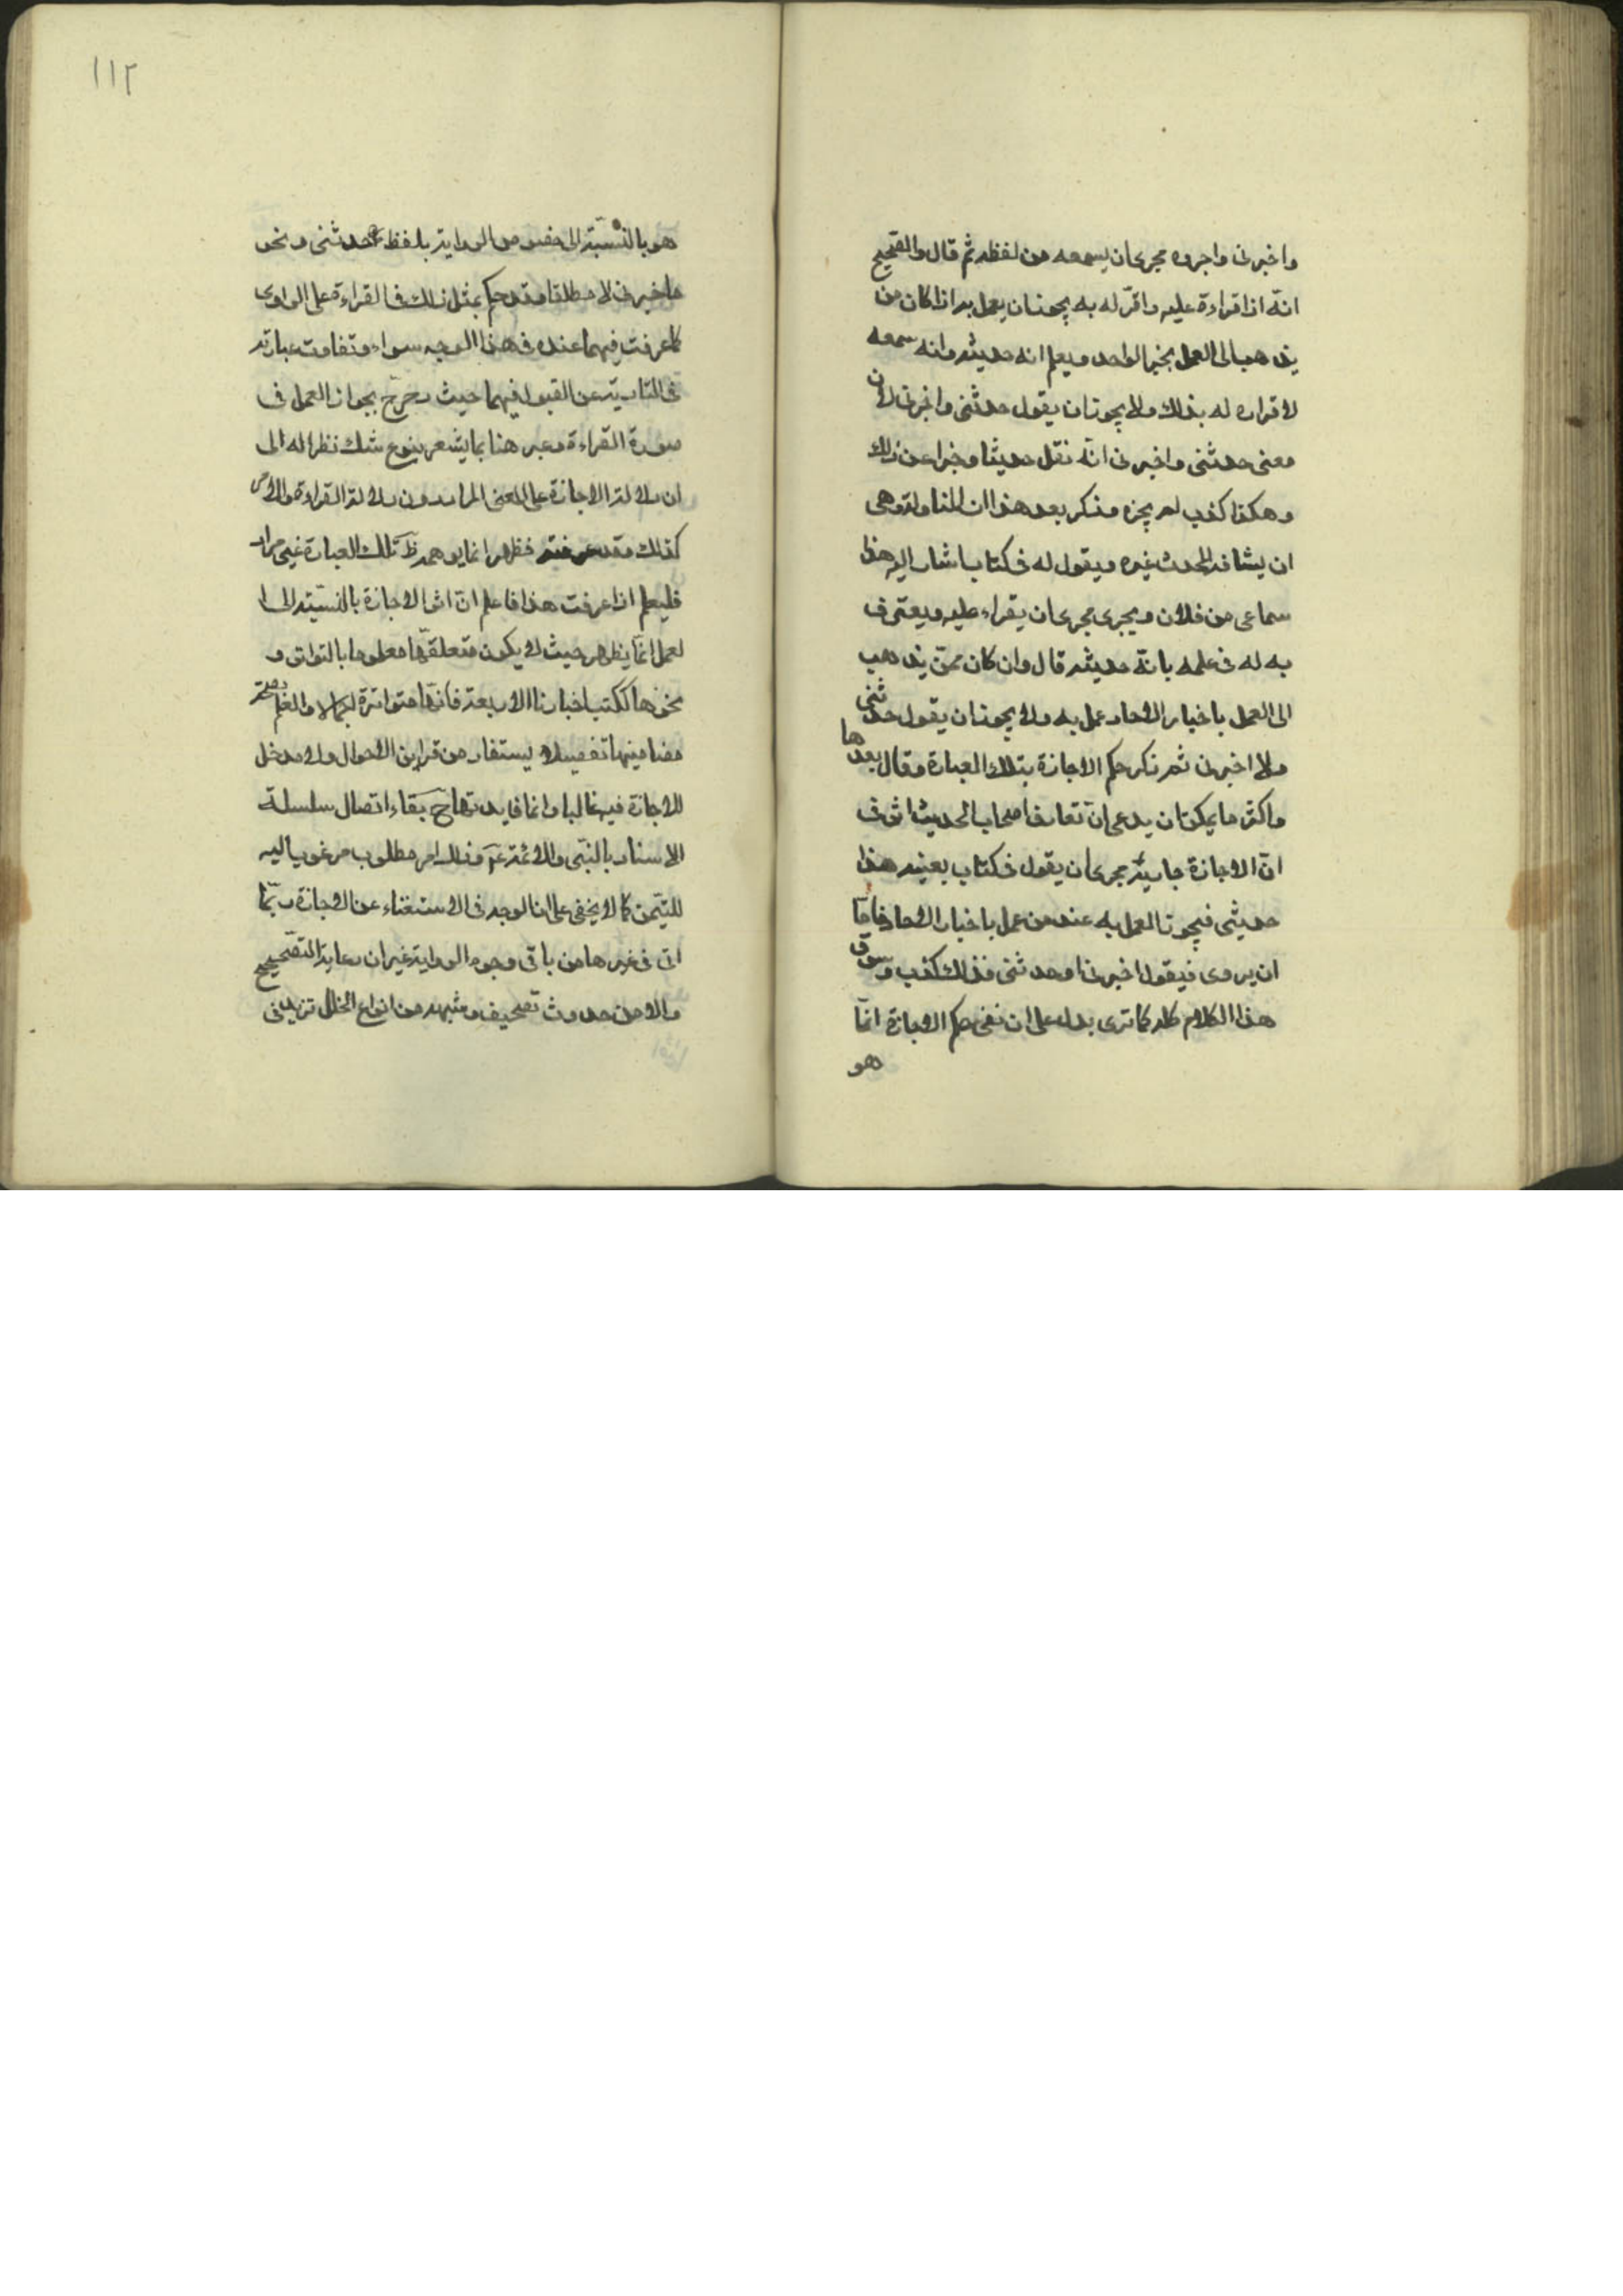 واخبرنى واجروه مجرى ان يسمعه من لفظه ثم قال والصحيح
انّه اذا قراءة عليه واقرّ له به يجوز ان يعمل به اذا كان من
يذهب الى العمل بخبر الواحد ويعلم انه حديثه وانه سمعه
لاقراره له بذلك ولا يجوز ان يقول حدثنى واخبرنى لان
معنى حدثنى واخبرنى انّه نقل حديثا وخبرا عن ذلك
وهكذا كذب لم يجزه وذكر بعد هذا ان المناولة وهى
ان يشافه المحدث غيره ويقول له فى كتاب اشار اليه هذا
سماعى من فلان ويجرى مجرى ان يقراء عليه ويعترف
به له فى علمه بانّه حديثه قال وان كان ممّن يذهب
الى العمل باخبار الاحاد عمل به ولا يجوز ان يقول حدثنى
ولا اخبرنى ثم ذكر حكم الاجازة بتلك العبارة وقال بعدها
واكثر ما يمكن ان يدعى انّ تعارف اصحاب الحديث اثر فى
انّ الاجازة جارية مجرى ان يقول فى كتاب بعينه هذا
حديثى فيجوز العمل به عند من عمل باخبار الاحاد فامّا
ان يروى فيقول اخبرنى او حدثنى فذلك كذب وسوق
هذا الكلام كله كما ترى يدل على ان نفى حكم الاجازة انّما
هو
١١٢
هو بالنسبة الى خصوص الرواية بلفظ حدثنى ونحو
واخبرنى لا مطلقا وقد حكم بمثل ذلك فى القراءة على الراوى
كما عرفت فهما عنده فى هذا الوجه سواء وتفاوت عبارته
فى التادية عن القبول فيهما حيث صرّح بجواز العمل فى
صورة القراءة وعبر هنا بما يشعر بنوع شك نظرا له الى
ان دلالة الاجازة على المعنى المراد دون دلالة القراءة والامر
كذلك وقد عرفته فظهر انما يوهمه ظ تلك العبارة غير مراد
فليعلم اذا عرفت هذا فاعلم انّ اثر الاجازة بالنسبة الى ا
لعمل انّما يظهر حيث لا يكون متعلقها معلوما بالتواتر و
نحوها ككتب اخبارنا الاربعة فانّها متواترة اجمالا والعلم بصحّة
مضامينها تفصيلا يستفاد من قراين الاحوال ولا مدخل
للاجازة فيه غالبا وانما فايدتها ح بقاء اتصال سلسلة
الاسناد بالنبى والائمة عم وذلك امر مطلوب مرغوب اليه
للتيمّن كما لا يخفى على ان الوجه فى الاستغناء عن الاجازة ربّما
اتى فى غيرها من باقى وجوه الرواية غير ان رعاية التصحيح
والامن حدوث تصحيف وشبهه من انواع الخلل تزيد فى